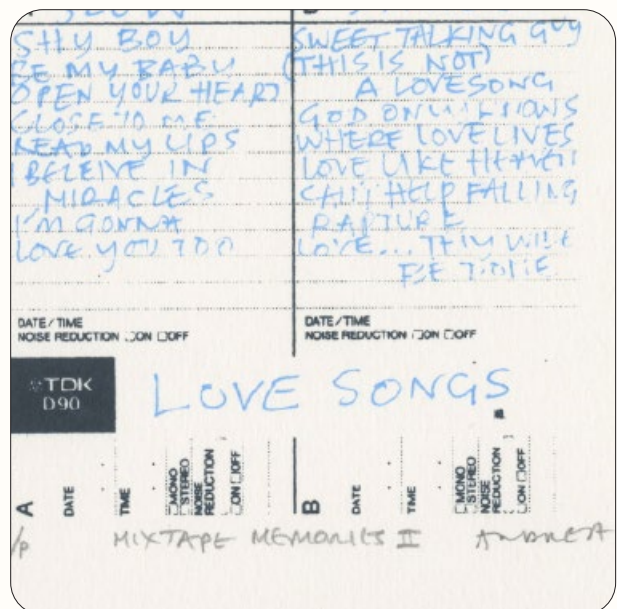 SHY BOY
BE MY BABY
OPEN YOUR HEART
CLOSE TO ME
READ MY LIPS
I BELEIVE IN
MIRACLES
I'M GONNA
LOVE YOU TOO
DATE/TIME
NOISE REDUCTION ON OFF
SWEET TALKING GUY
(THIS IS NOT)
A LOVESONG
GOD ONLY KNOWS
WHERE LOVE LIVES
LOVE LIKE HEAVEN
HELP FALLING
RAPTURE
LOVE... THIS WILL
BE
DATE/TIME
NOISE REDUCTION ON OFF
TDK
D90
LOVE SONGS
A
DATE
TIME
MONO
STEREO
NOISE
REDUCTION
ON OFF
B
DATE
TIME
MONO
STEREO
NOISE
REDUCTION
ON OFF
/P MIXTAPE MEMORIES II ANDREA